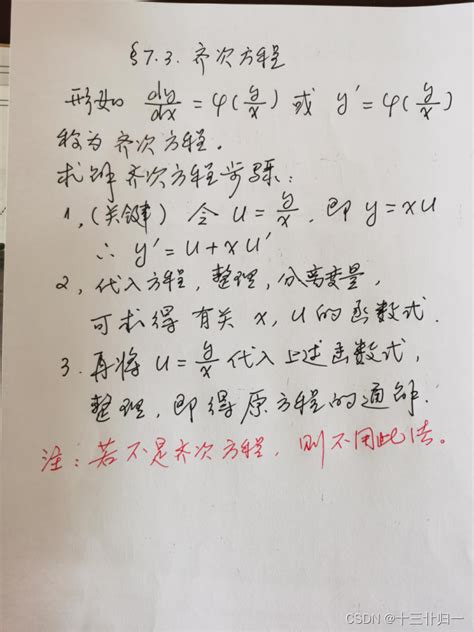 §7.3. 齐次方程
形如 dy/dx = φ(y/x) 或 y' = φ(y/x)
称为齐次方程.
求解齐次方程步骤:
1, (关键) 令 u = y/x, 即 y = xu
∴ y' = u + xu'
2, 代入方程, 整理, 分离变量,
可求得有关 x, u 的函数式.
3. 再将 u = y/x 代入上述函数式,
整理, 即得原方程的通解.
注: 若不是齐次方程, 则不用此法。
CSDN @十三卝归一